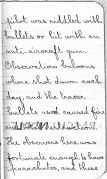 pilot was riddled with
bullets or hit with an
anti aircraft gun.
Observation baloons
where shot down each
day and the tracer
bullets used caused fire
and
The observers here was
fortunate enough to have
parachutes and these